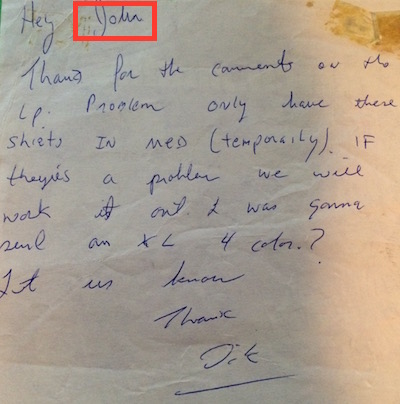 Hey John
Thanks for the comments on the
Lp. Problem only have these
shirts IN MED (temporarily). IF
theyrés a problem we will
work it out. I was gonna
send an XL 4 color.?
Let us know
Thanx